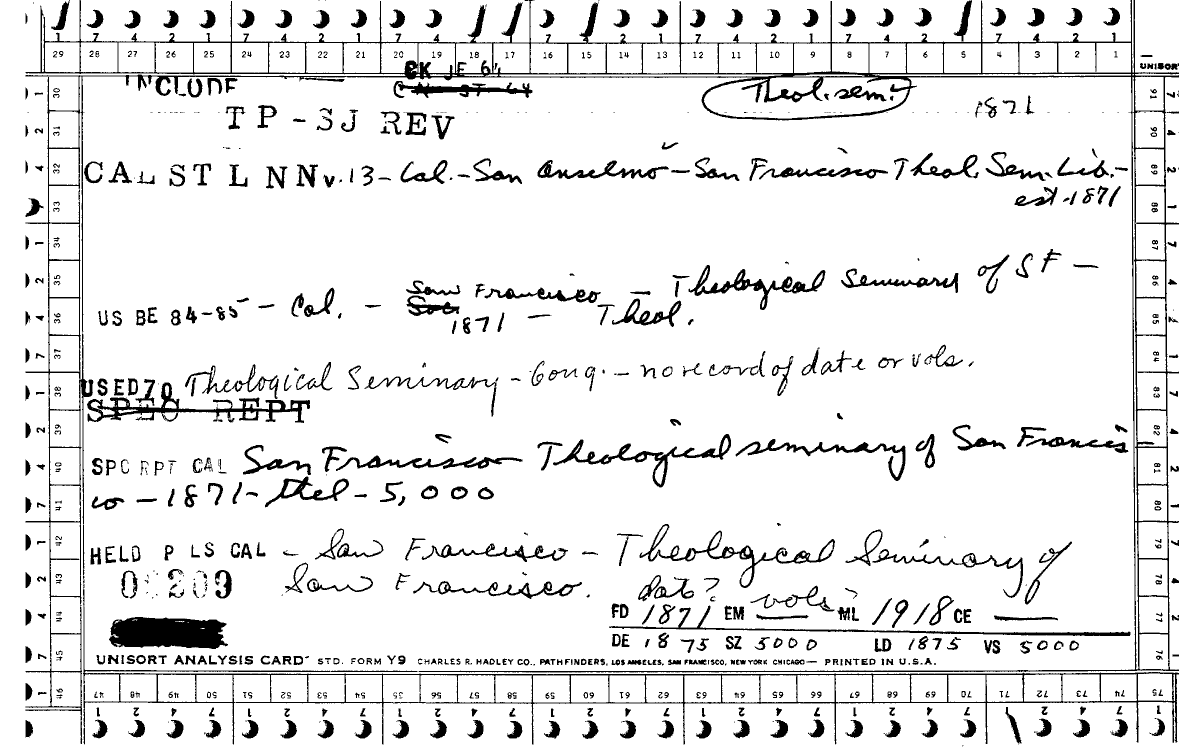 1 7 4 2 1 7 4 2 1 7 4 2 1 7 4 2 1 7 4 2 1 7 4 2 1 7 4 2 1
29 28 27 26 25 24 23 22 21 20 19 18 17 16 15 14 13 12 11 10 9 8 7 6 5 4 3 2 1
UNISORT
CK JE 64
INCLUDE
Theol. sem.
1871
TP-SJ REV
CAL ST L NN v. 13 - Cal. - San Anselmo - San Francisco Theol. Sem. Lib. -
est. 1871
US BE 84-85 - Cal. - San Francisco - Theological Seminary of SF -
1871 - Theol.
USED 70 Theological Seminary - Cong. - no record of date or vols.
SPEC REPT
SPC RPT CAL San Francisco Theological seminary of San Francis
co - 1871 - thel - 5,000
HELD P LS CAL - San Francisco - Theological Seminary of
San Francisco. date?
vols?
FD 1871 EM — ML 1918 CE —
DE 1875 SZ 5000 LD 1875 VS 5000
UNISORT ANALYSIS CARD STD. FORM Y9 CHARLES R. HADLEY CO., PATHFINDERS, LOS ANGELES, SAN FRANCISCO, NEW YORK CHICAGO — PRINTED IN U.S.A.
47 48 49 50 51 52 53 54 55 56 57 58 59 60 61 62 63 64 65 66 67 68 69 70 71 72 73 74 75